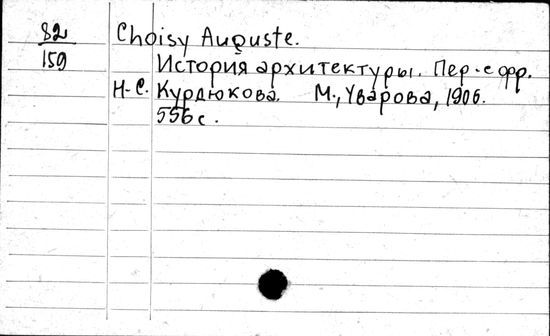 82 Choisy Auguste.
159 История архитектуры. Пер. с фр.
Н. С. Курдюкова. М., Уварова, 1906.
556 с.